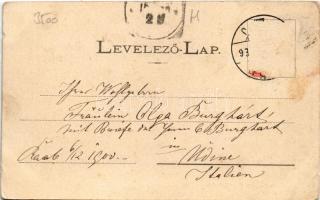 3500
28
M
LEVELEZŐ-LAP.
93
Ihrer Wohlgeboren
Fräulein Olga Burghárt,
mit Briefe des Herrn C. Burghart
in
Raab 6/12 1900.
Udine
Italien